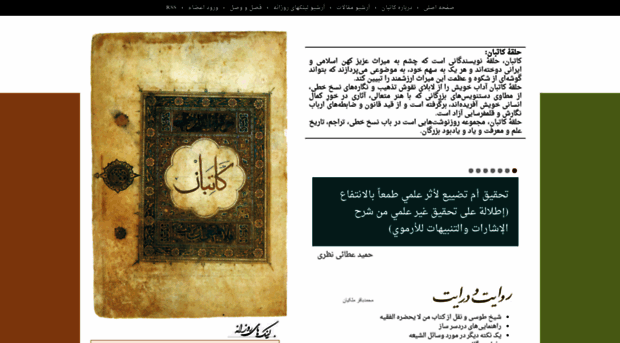 صفحه اصلی • درباره کاتبان • آرشیو مقالات • آرشیو لینکهای روزانه • فصل و وصل • ورود اعضاء • RSS
حلقهٔ کاتبان:
کاتبان، حلقهٔ نویسندگانی است که چشم به میراث عزیز کهن اسلامی و
ایرانی دوخته‌اند و هر یک به سهم خود، به موضوعی می‌پردازند که بتواند
گوشه‌ای از شکوه و عظمت این میراث ارزشمند را تبیین کند.
حلقهٔ کاتبان آداب خویش را از لابلای نقوش تذهیب و نگاره‌های نسخ خطی،
از مطاوی دستنویس‌های بزرگانی که با هنر متعالی، آثاری در خور کمال
انسانی خویش آفریده‌اند، برگرفته است و از قید قانون و ضابطه‌های ارباب
نگارش و قلمفرسایی آزاد است.
حلقهٔ کاتبان، مجموعه روزنوشت‌هایی است در باب نسخ خطی، تراجم، تاریخ
علم و معرفت و یاد و یادبود بزرگان.
کاتبان
تحقيق أم تضييع لأثر علمي طمعاً بالانتفاع
(إطلالة على تحقيق غير علمي من شرح
الإشارات والتنبيهات للأرموي)
حمید عطائی نظری
روایت و درایت
محمدباقر ملکیان
شیخ طوسی و نقل از کتاب من لا یحضره الفقیه
راهنمایی‌های دردسر ساز
یک نکته دیگر در مورد وسائل الشیعه
لینک‌های روزانه